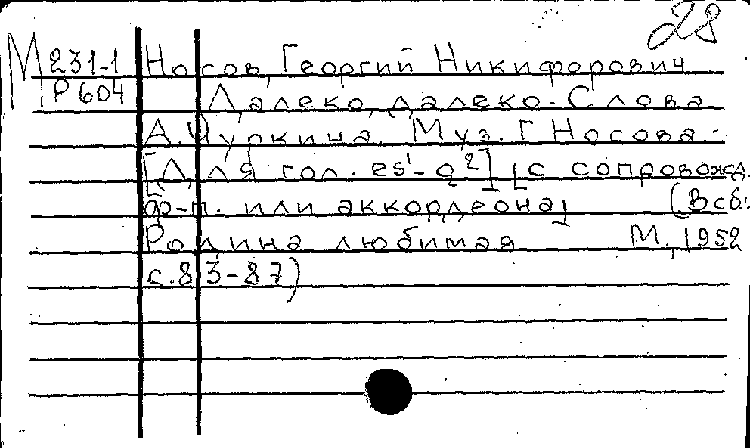 28
М 231-1 Носов, Георгий Никифорович
Р 604 Далеко, далеко. Слова
А. Чуркина. Муз. Г. Носова.
[Для гол. es¹-g²] [с сопровожд.
ф-п. или аккордеона] (В сб.:
Родина любимая М., 1952
с. 83-87)